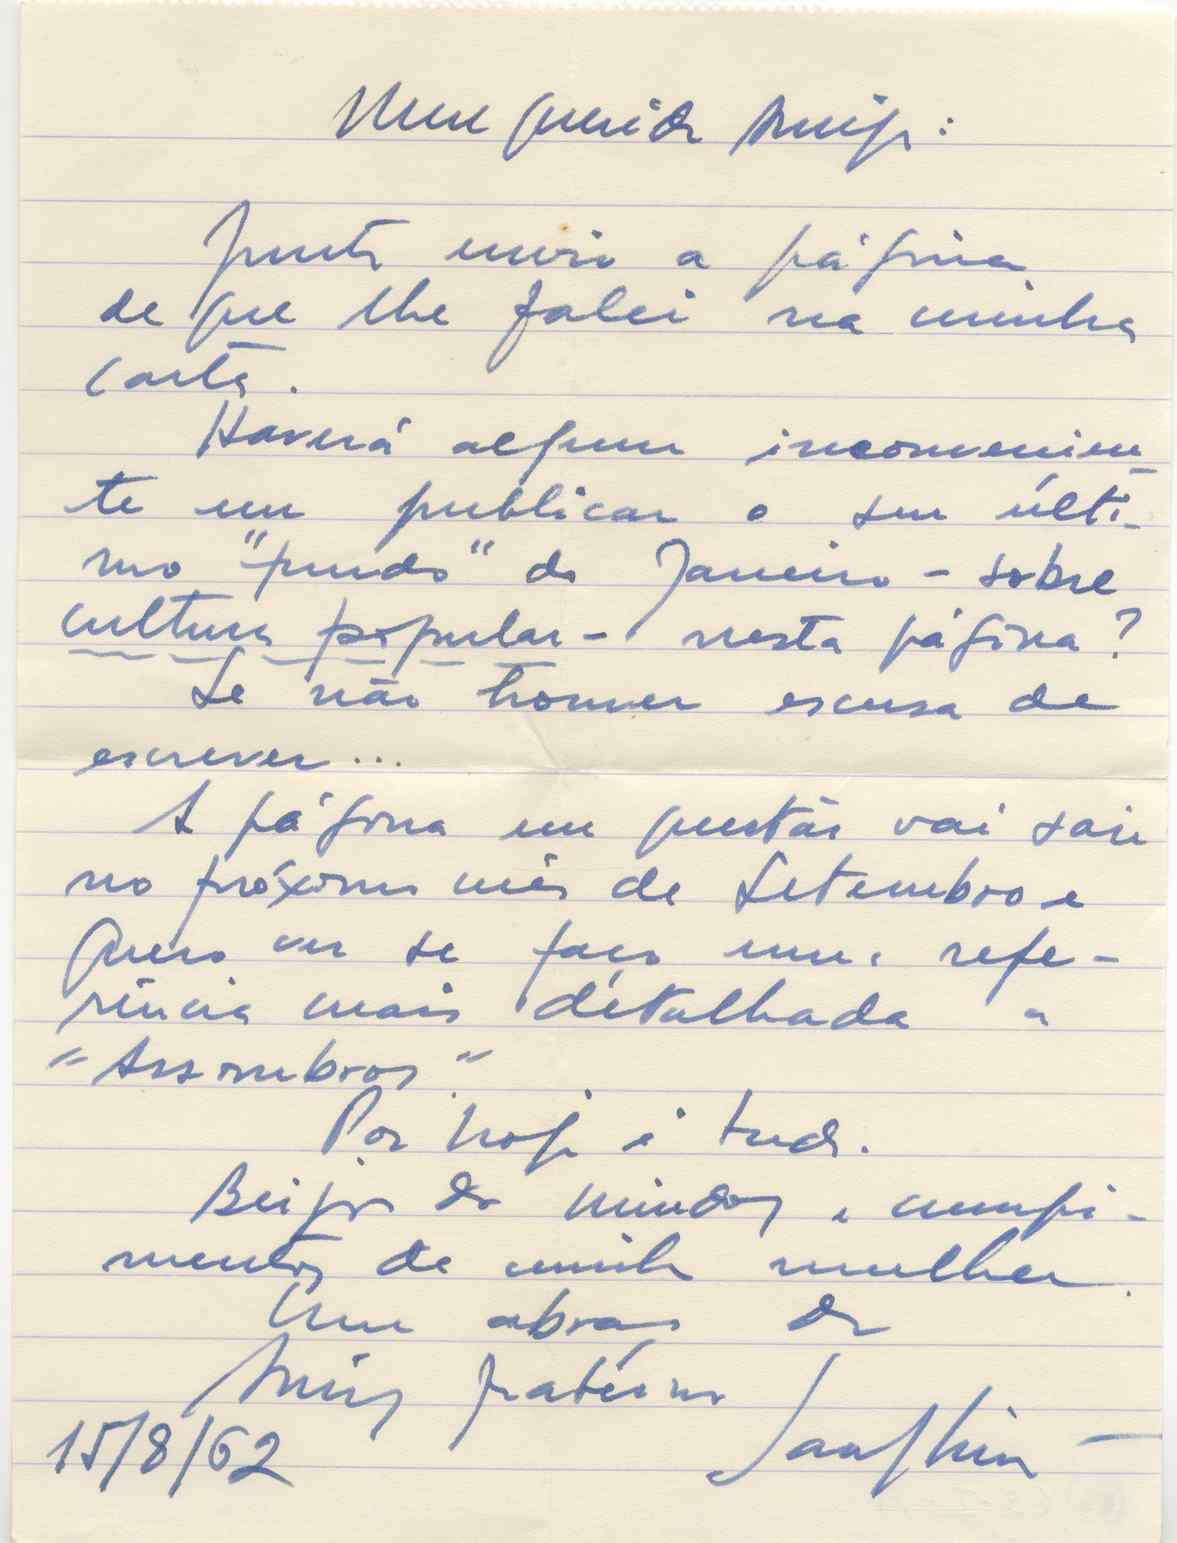 Meu querido Amigo:
Junto envio a página
de que lhe falei na minha
carta.
Haverá algum inconvenien-
te em publicar o seu últi-
mo "fundo" do Janeiro - sobre
cultura popular - nesta página?
Se não houver escusa de
escrever...
A página em questão vai sair
no próximo mês de Setembro e
quero ver se faço uma refe-
rência mais detalhada a
"Assombros".
Por hoje é tudo.
Beijos do miudos e cumpri-
mentos de minha mulher.
Um abraço do
Amigo fraterno
15/8/62